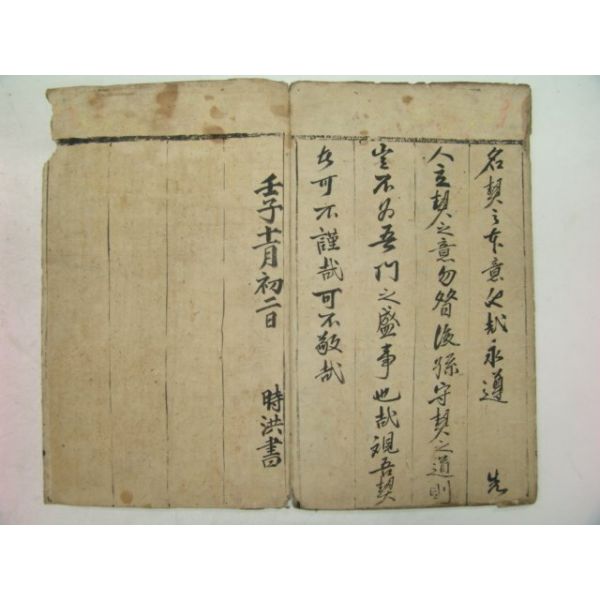 名契之本意也哉永遵 先
人立契之意勿替後孫守契之道則
豈不爲吾門之盛事也哉覩吾契
者可不謹哉可不敬哉
壬子十一月初二日 時洪書